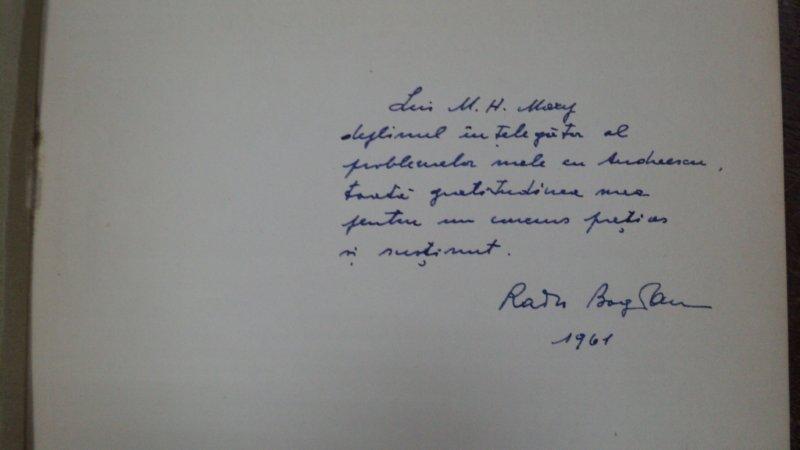 Lui M. H. Maxy
deplinul înțelegător al
problemelor mele cu Andreescu,
toată gratitudinea mea
pentru un concurs prețios
și susținut.
Radu Bogdan
1961